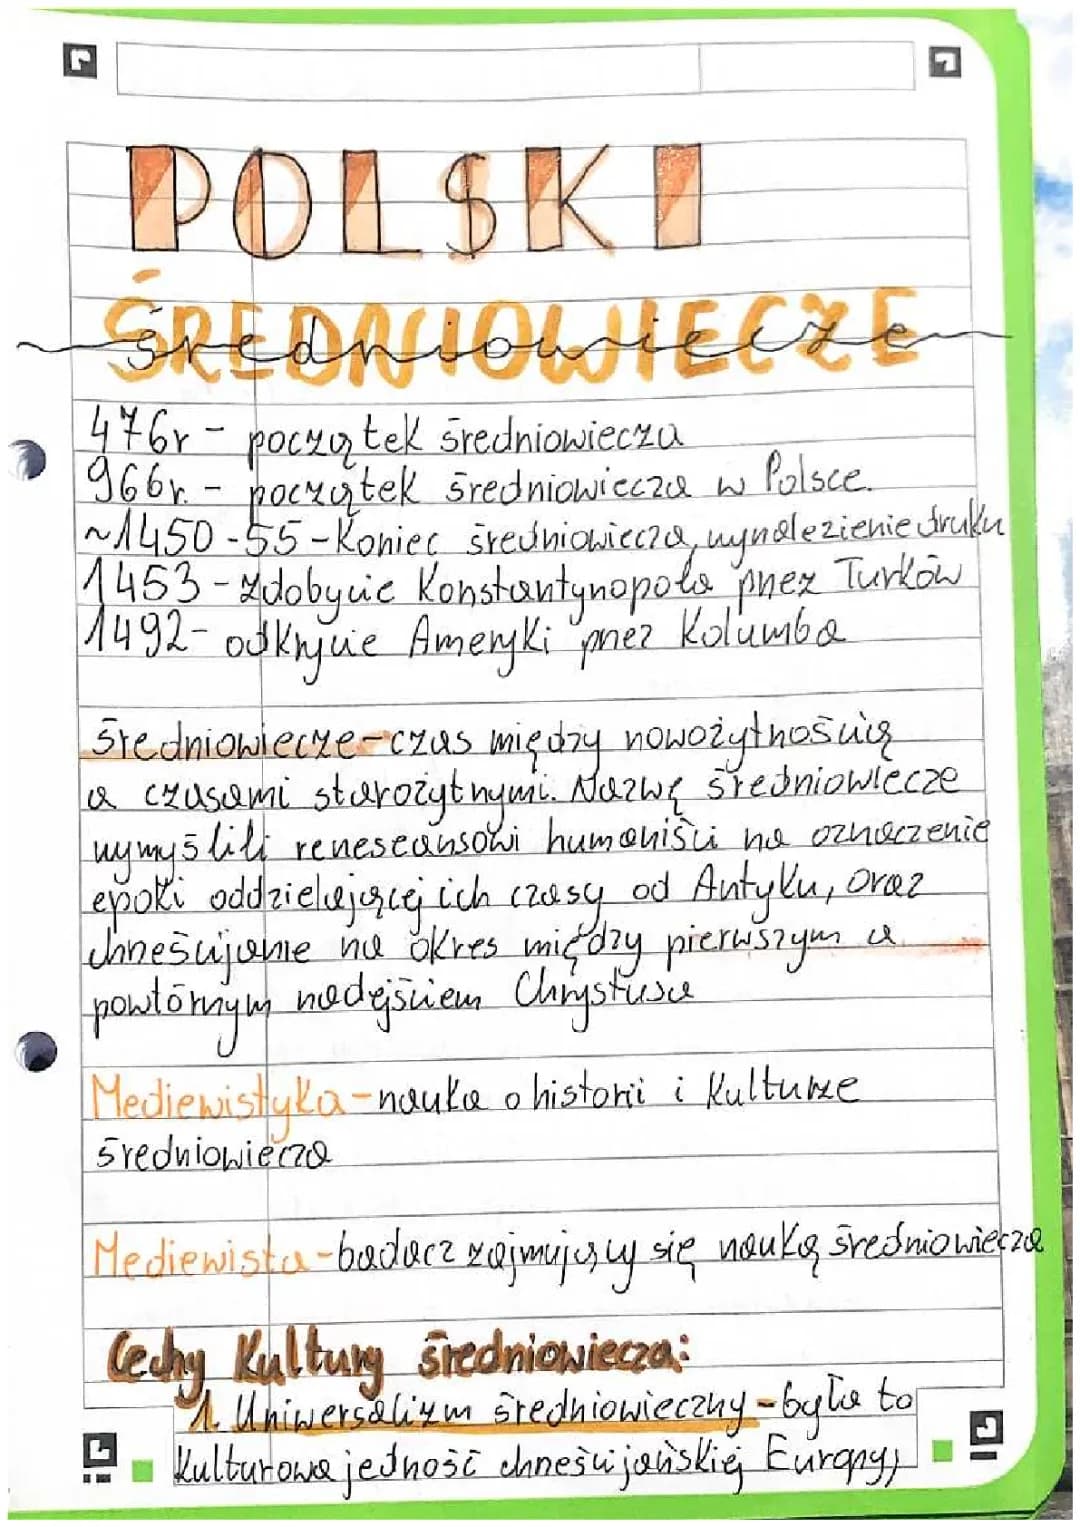 POLSKI
ŚREDNIOWIECZE
średniowiecze
476r - początek średniowiecza
966r. - początek średniowiecza w Polsce.
~1450-55-Koniec średniowiecza, wynalezienie druku
1453-zdobycie Konstantynopola przez Turków
1492- odkrycie Ameryki przez Kolumba
średniowiecze-czas między nowożytnością
a czasami starożytnymi. Nazwę średniowiecze
wymyślili reneseansowi humaniści na oznaczenie
epoki oddzielającej ich czasy od Antyku, oraz
chrześcijanie na okres między pierwszym a
powtórnym nadejściem Chrystusa
Mediewistyka-nauka o historii i kulturze
średniowiecza
Mediewista-badacz zajmujący się nauką średniowiecza
Cechy Kultury średniowiecza:
1. Uniwersalizm średniowieczny-była to
kulturowa jedność chrześcijańskiej Europy,